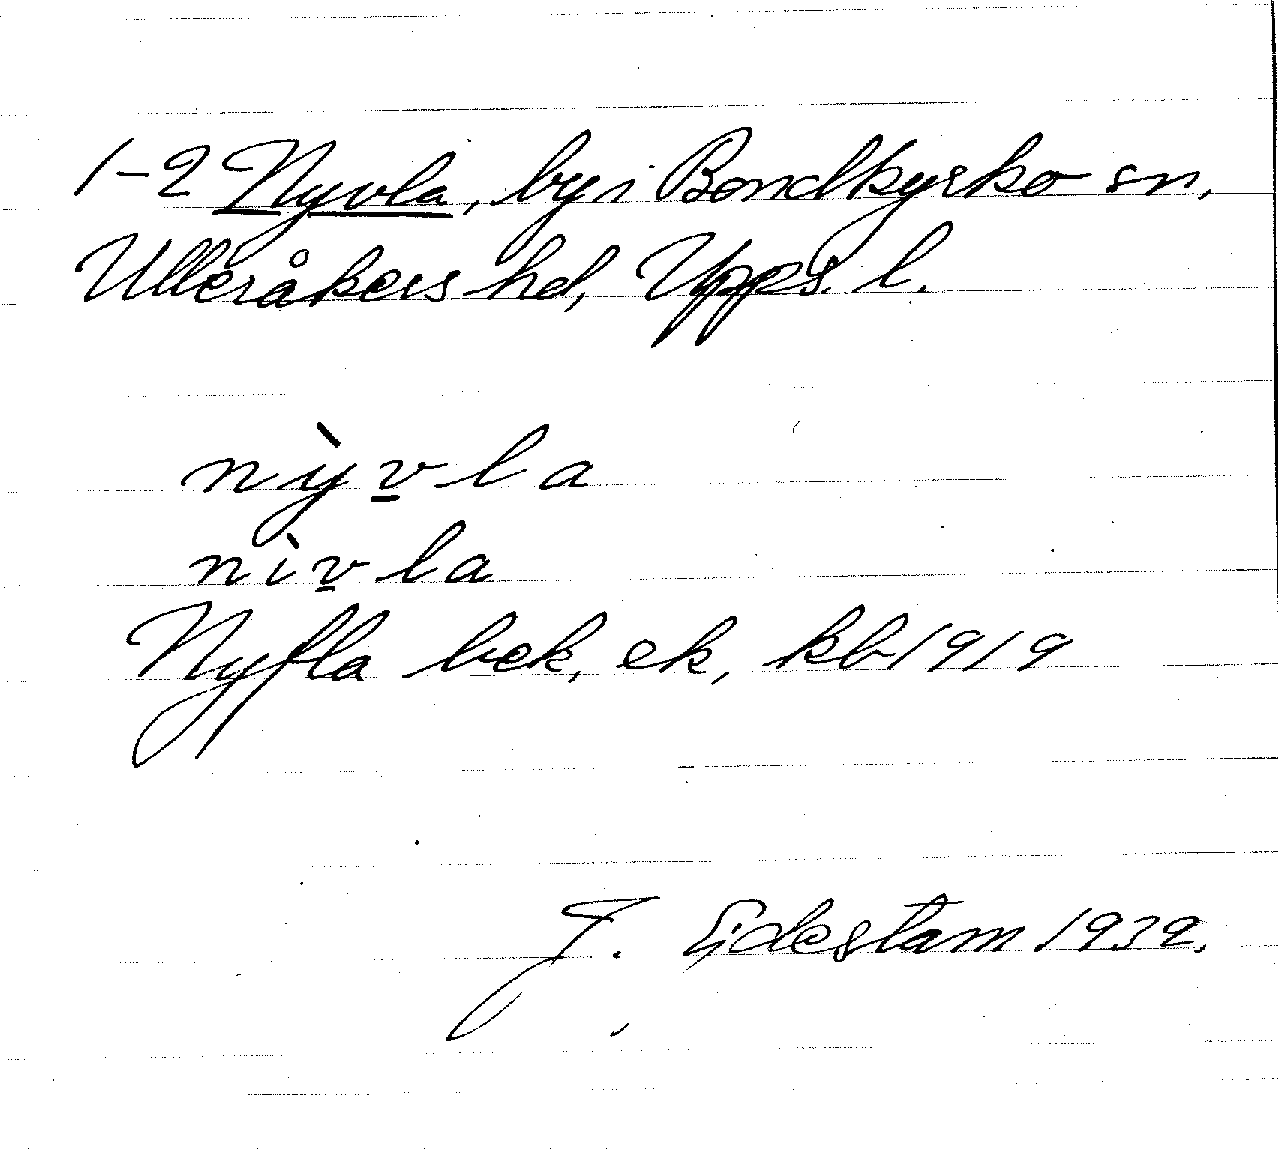 1-2 Nyvla, by i Bondkyrko sn,
Ulleråkers hd, Upps. l.
nỳvla
nìvla
Nyfla bek, ek, kb 1919
J. Eidestam 1939.